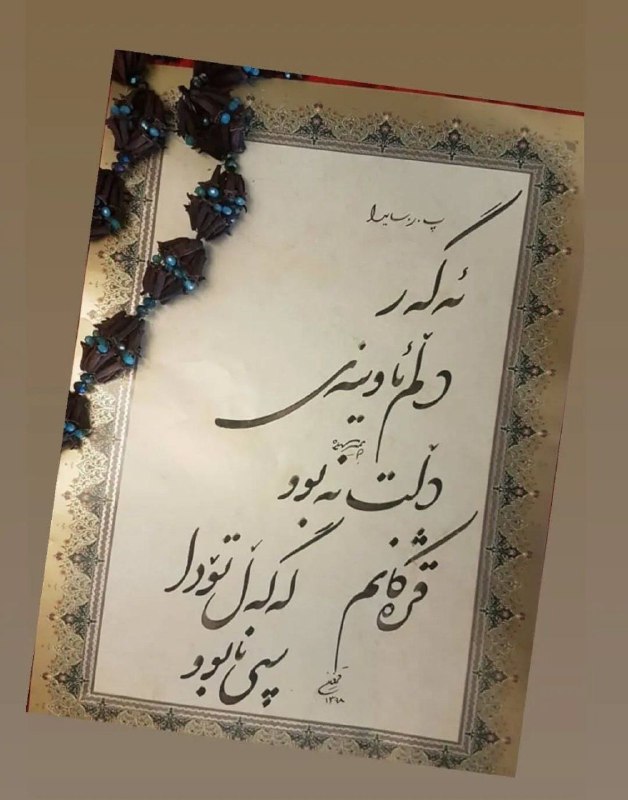 پ.ر.سایرا
ئەگەر
دڵم ئاوێنەی
دڵت نەبوو
قژەکانم
لەگەڵ تۆدا
سپی نابوو
۱۳۹۸